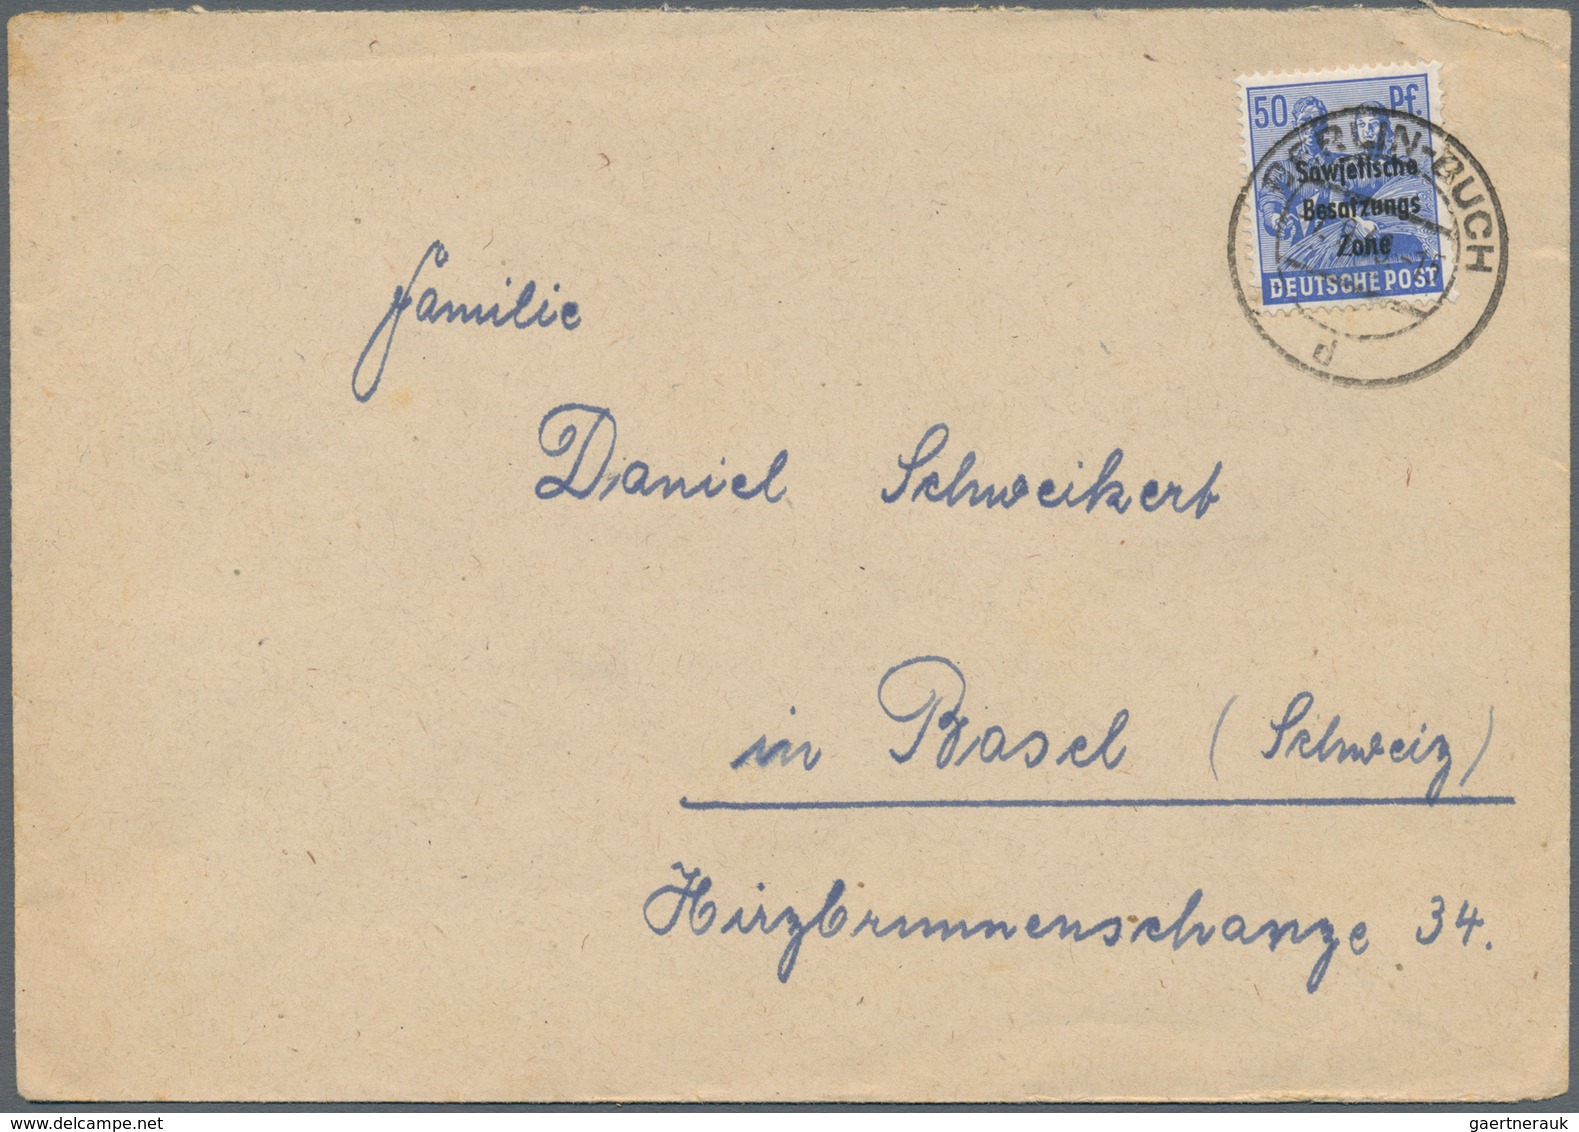 50 Pf.
BERLIN-BUCH
Sowjetische
Besatzungs
Zone
DEUTSCHE POST
d
Familie
Daniel Schweikert
in Basel (Schweiz)
Hirzbrunnenschanze 34.
www.delcampe.net
gaertnerauk